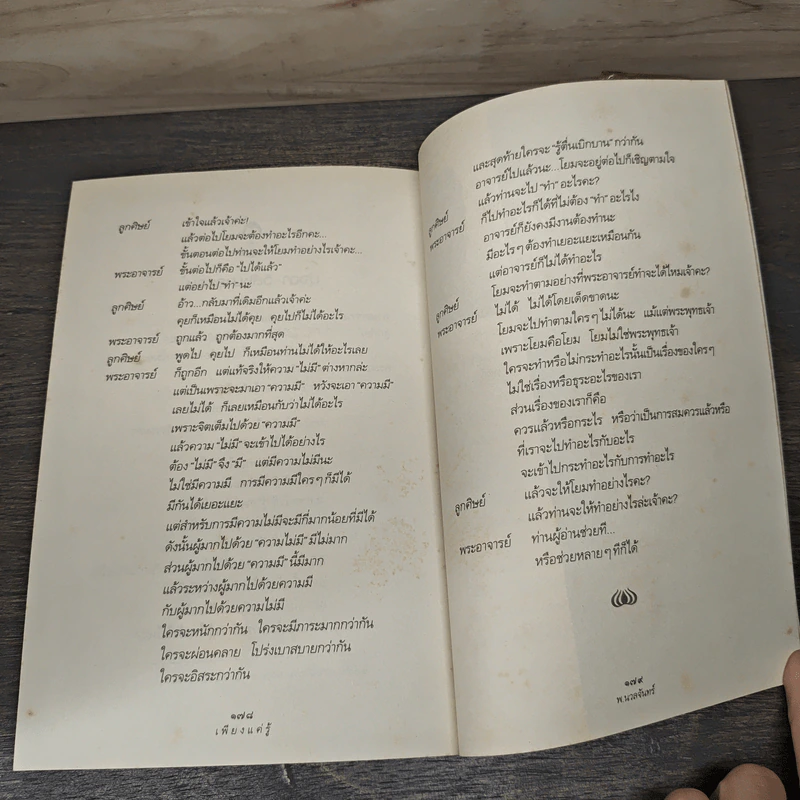 ลูกศิษย์ เข้าใจแล้วเจ้าค่ะ!
แล้วต่อไปโยมจะต้องทำอะไรอีกคะ...
ขั้นตอนต่อไปท่านจะให้โยมทำอย่างไรเจ้าคะ...
พระอาจารย์ ขั้นต่อไปก็คือ “ไปได้แล้ว”
แต่อย่าไป “ทำ” นะ
ลูกศิษย์ อ้าว...กลับมาที่เดิมอีกแล้วเจ้าค่ะ
คุยก็เหมือนไม่ได้คุย คุยไปก็ไม่ได้อะไร
พระอาจารย์ ถูกแล้ว ถูกต้องมากที่สุด
ลูกศิษย์ พูดไป คุยไป ก็เหมือนท่านไม่ได้ให้อะไรเลย
พระอาจารย์ ก็ถูกอีก แต่แท้จริงให้ความ “ไม่มี” ต่างหากล่ะ
แต่เป็นเพราะจะมาเอา “ความมี” หวังจะเอา “ความมี”
เลยไม่ได้ ก็เลยเหมือนกับว่าไม่ได้อะไร
เพราะจิตเต็มไปด้วย “ความมี”
แล้วความ “ไม่มี” จะเข้าไปได้อย่างไร
ต้อง “ไม่มี” จึง “มี” แต่มีความไม่มีนะ
ไม่ใช่มีความมี การมีความมีใครๆ ก็มีได้
มีกันได้เยอะแยะ
แต่สำหรับการมีความไม่มีจะมีก็มากน้อยที่มีได้
ดังนั้นผู้มากไปด้วย “ความไม่มี” มีไม่มาก
ส่วนผู้มากไปด้วย “ความมี” นี้มีมาก
แล้วระหว่างผู้มากไปด้วยความมี
กับผู้มากไปด้วยความไม่มี
ใครจะหนักกว่ากัน ใครจะมีภาระมากกว่ากัน
ใครจะผ่อนคลาย โปร่งเบาสบายกว่ากัน
ใครจะอิสระกว่ากัน
๑๗๘
เพียงแค่รู้
และสุดท้ายใครจะ “รู้ตื่นเบิกบาน” กว่ากัน
อาจารย์ไปแล้วนะ...โยมจะอยู่ต่อไปก็เชิญตามใจ
ลูกศิษย์ แล้วท่านจะไป “ทำ” อะไรคะ?
พระอาจารย์ ก็ไปทำอะไรก็ได้ที่ไม่ต้อง “ทำ” อะไรไง
อาจารย์ก็ยังคงมีงานต้องทำนะ
มีอะไรๆ ต้องทำเยอะแยะเหมือนกัน
แต่อาจารย์ก็ไม่ได้ทำอะไร
ลูกศิษย์ โยมจะทำตามอย่างที่พระอาจารย์ทำจะได้ไหมเจ้าคะ?
พระอาจารย์ ไม่ได้ ไม่ได้โดยเด็ดขาดนะ
โยมจะไปทำตามใครๆ ไม่ได้นะ แม้แต่พระพุทธเจ้า
เพราะโยมคือโยม โยมไม่ใช่พระพุทธเจ้า
ใครจะทำหรือไม่กระทำอะไรนั้นเป็นเรื่องของใครๆ
ไม่ใช่เรื่องหรือธุระอะไรของเรา
ส่วนเรื่องของเราก็คือ
ควรแล้วหรือกระไร หรือว่าเป็นการสมควรแล้วหรือ
ที่เราจะไปทำอะไรกับอะไร
จะเข้าไปกระทำอะไรกับการทำอะไร
ลูกศิษย์ แล้วจะให้โยมทำอย่างไรคะ?
แล้วท่านจะให้ทำอย่างไรล่ะเจ้าคะ?
พระอาจารย์ ท่านผู้อ่านช่วยที...
หรือช่วยหลายๆ ทีก็ได้
๑๗๙
พ.นวลจันทร์